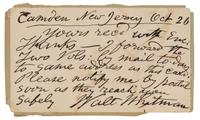 Camden New Jersey Oct 26
Yours rec'd with Enc.
Thanks – I forward the
two Vols: by mail to-day
to same address as this card.
Please notify me by postal
soon as they reach you
safely Walt Whitman